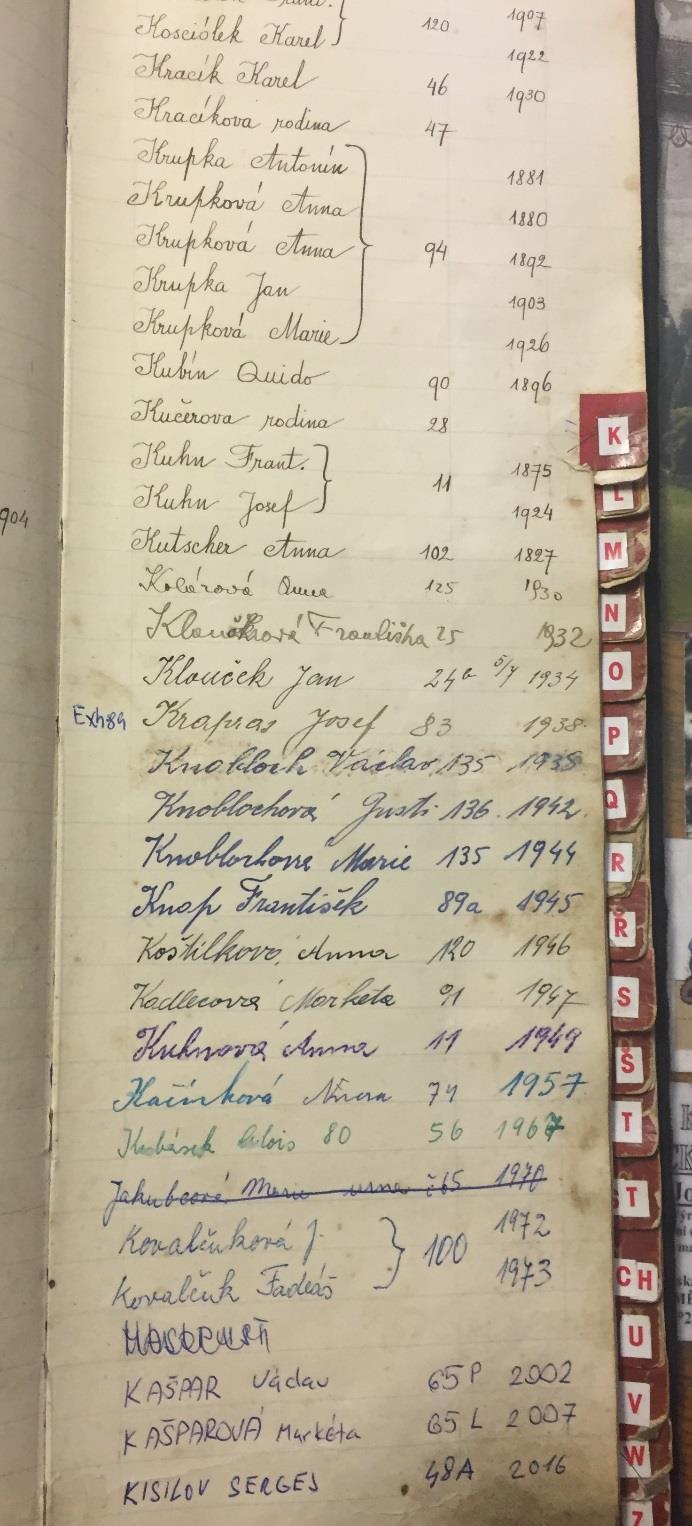 120 1907
Kosciólek Karel 1922
Kracík Karel 46 1930
Kracíkova rodina 47
Krupka Antonín 1881
Krupková Anna 1880
Krupková Anna 94 1892
Krupka Jan 1903
Krupková Marie 1926
Kubín Quido 90 1896
Kučerova rodina 28
Kuhn Frant. 11 1875
Kuhn Josef 1924
904
Kutscher Anna 102 1827
Kolárová Anna 125 1930
Františka 25 1932
Klouček Jan 24a 5/7 1934
Exh89 Krapras Josef 83 1938
Knobloch Václav 135 1938
Knoblochová Gusti 136 1942
Knoblochová Marie 135 1944
Knap František 89a 1945
Koštilková Anna 120 1946
Kadlecová Markéta 91 1947
Kuhnová Anna 11 1949
Kačínková 74 1957
Kubásek Alois 80 56 1967
Jakubcová Marie urna č65 1970
Kovalčuková J. 100 1972
Kovalčuk Fadeáš 1973
KAŠPAR Václav 65P 2002
KAŠPAROVÁ Markéta 65L 2007
KISILOV SERGES 48A 2016
K
L
M
N
O
P
Q
R
Ř
S
Š
T
ST
CH
U
V
W
Z